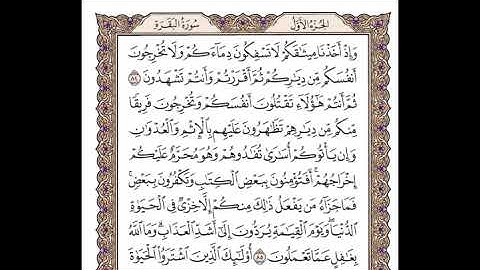 سُورَةُ البَقَرَةِ
الجُزْءُ الأَوَّلُ
وَإِذْ أَخَذْنَا مِيثَٰقَكُمْ لَا تَسْفِكُونَ دِمَآءَكُمْ وَلَا تُخْرِجُونَ
أَنفُسَكُم مِّن دِيَٰرِكُمْ ثُمَّ أَقْرَرْتُمْ وَأَنتُمْ تَشْهَدُونَ ٨٤
ثُمَّ أَنتُمْ هَٰٓؤُلَآءِ تَقْتُلُونَ أَنفُسَكُمْ وَتُخْرِجُونَ فَرِيقًا
مِّنكُم مِّن دِيَٰرِهِمْ تَظَٰهَرُونَ عَلَيْهِم بِٱلْإِثْمِ وَٱلْعُدْوَٰنِ
وَإِن يَأْتُوكُمْ أُسَٰرَىٰ تُفَٰدُوهُمْ وَهُوَ مُحَرَّمٌ عَلَيْكُمْ
إِخْرَاجُهُمْ ۚ أَفَتُؤْمِنُونَ بِبَعْضِ ٱلْكِتَٰبِ وَتَكْفُرُونَ بِبَعْضٍ ۚ
فَمَا جَزَآءُ مَن يَفْعَلُ ذَٰلِكَ مِنكُمْ إِلَّا خِزْىٌ فِى ٱلْحَيَوٰةِ
ٱلدُّنْيَا ۖ وَيَوْمَ ٱلْقِيَٰمَةِ يُرَدُّونَ إِلَىٰٓ أَشَدِّ ٱلْعَذَابِ ۗ وَمَا ٱللَّهُ
بِغَٰفِلٍ عَمَّا تَعْمَلُونَ ٨٥ أُو۟لَٰٓئِكَ ٱلَّذِينَ ٱشْتَرَوُا۟ ٱلْحَيَوٰةَ